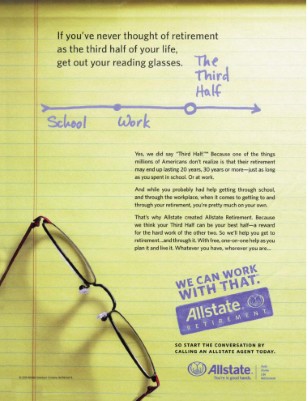 If you've never thought of retirement
as the third half of your life,
get out your reading glasses.
The
Third
Half
School
Work
Yes, we did say "Third Half." Because one of the things
millions of Americans don't realize is that their retirement
may end up lasting 20 years, 30 years or more—just as long
as you spent in school. Or at work.
And while you probably had help getting through school,
and through the workplace, when it comes to getting to and
through your retirement, you're pretty much on your own.
That's why Allstate created Allstate Retirement. Because
we think your Third Half can be your best half—a reward
for the hard work of the other two. So we'll help you get to
retirement...and through it. With free, one-on-one help as you
plan it and live it. Whatever you have, wherever you are...
WE CAN WORK
WITH THAT.
Allstate
RETIREMENT
SO START THE CONVERSATION BY
CALLING AN ALLSTATE AGENT TODAY.
Allstate.
You're in good hands.